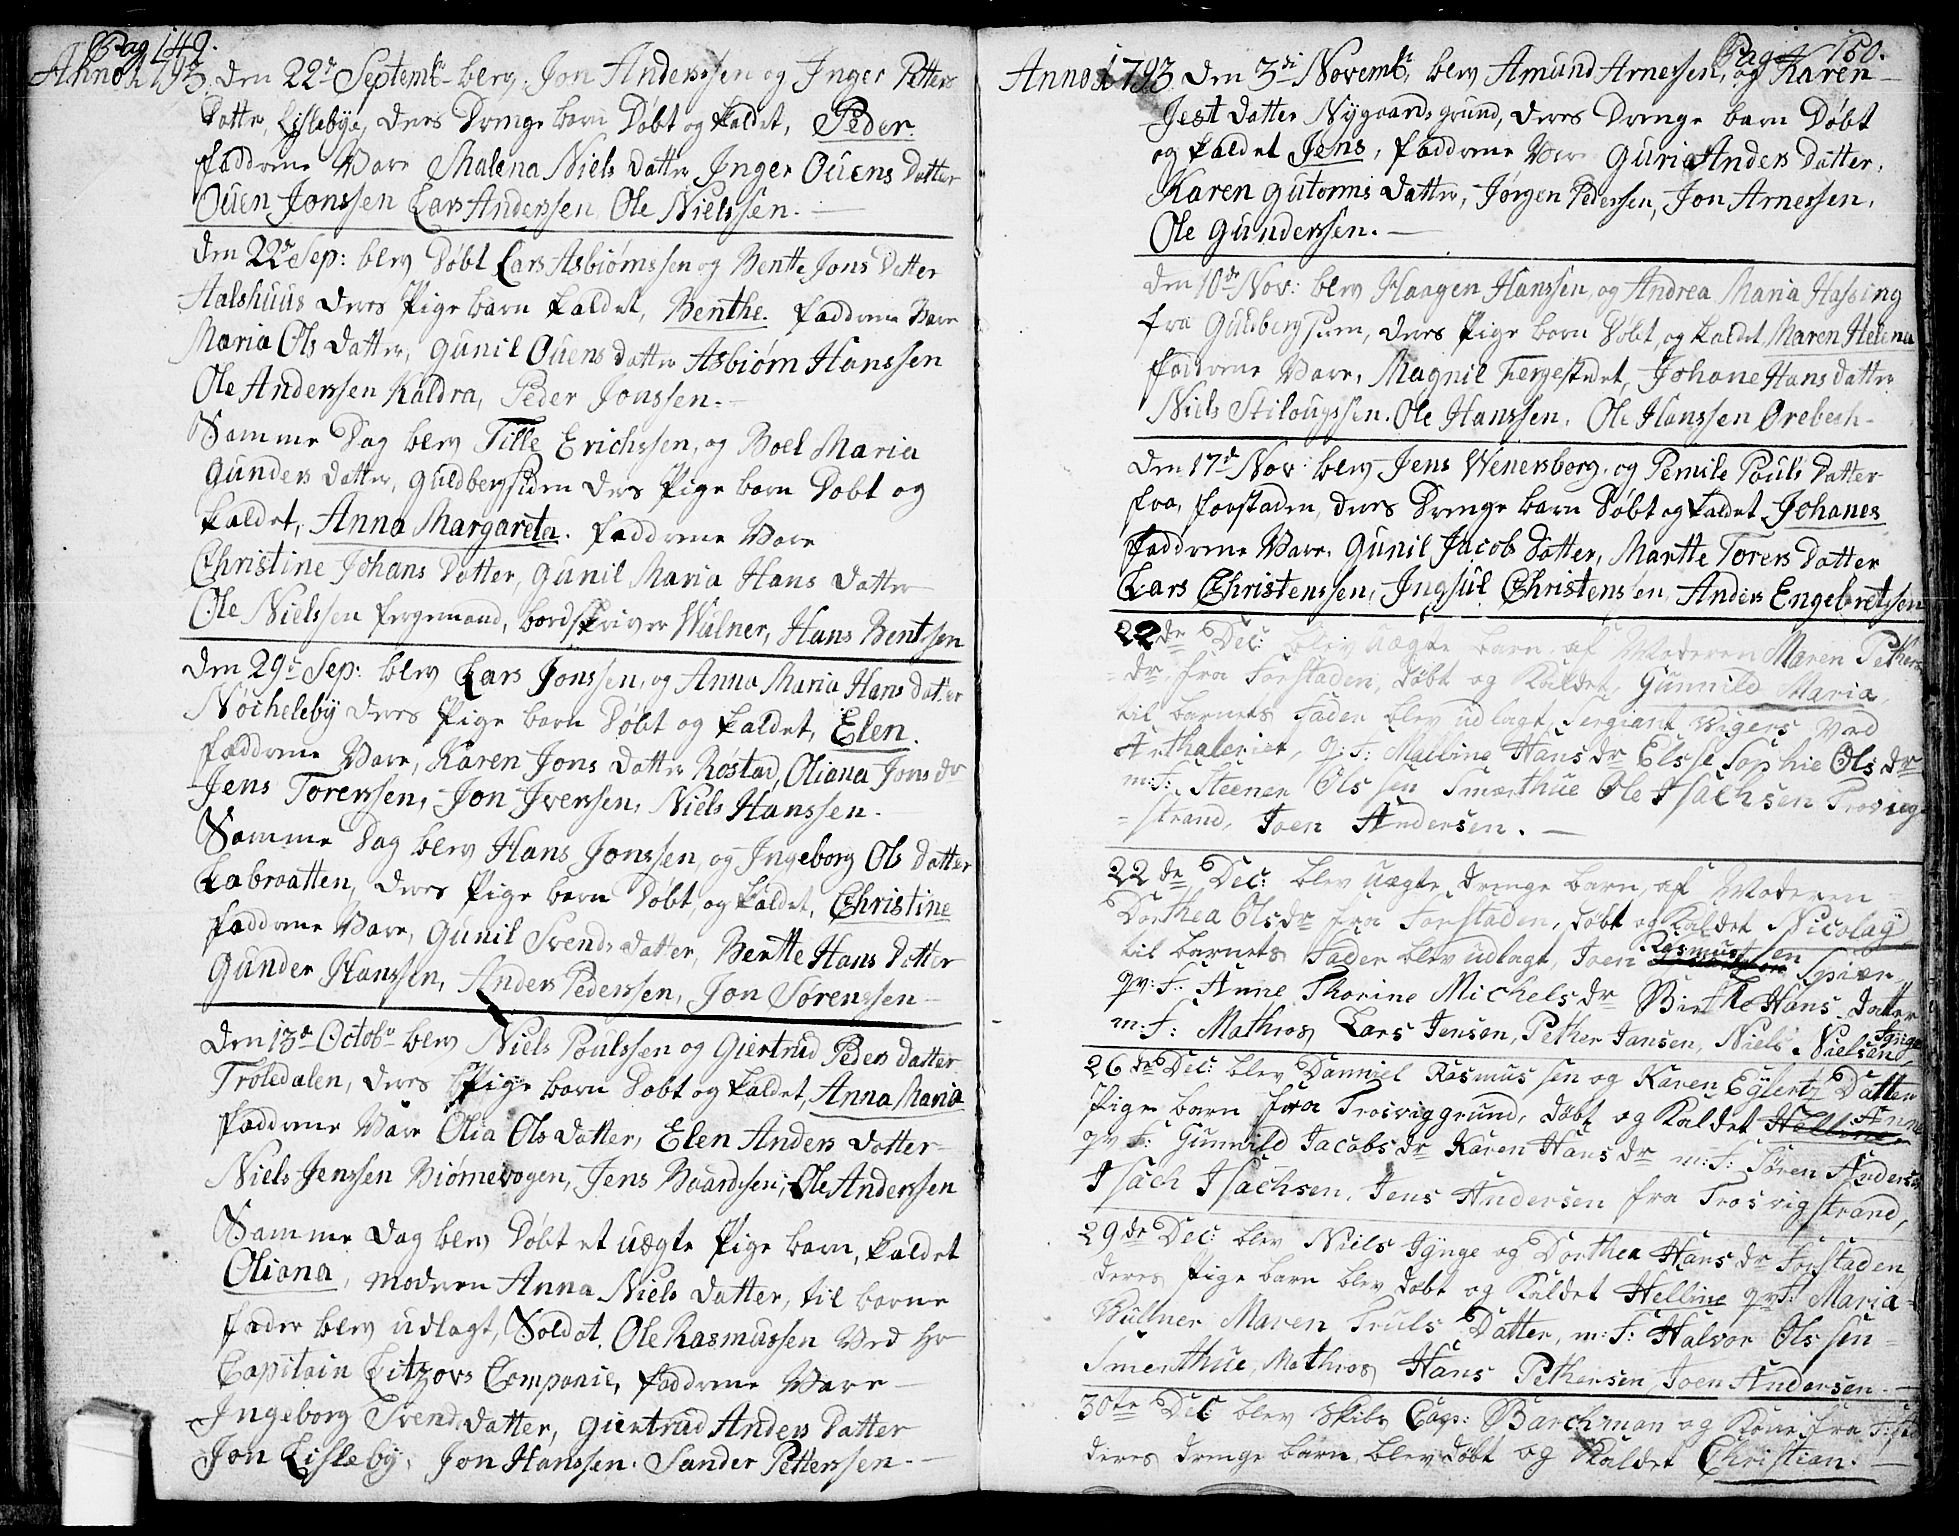 Pag 149.
Anno 1793. Den 22de Septembr blev Jon Anderssen og Inger Petters
Datter, Lisslebye, deres Drenge barn Døbt og kaldet, Peder.
Faddrene Vare Malena Niels Datter Inger Ouens Datter
Ouen Jonssen Lars Anderssen, Ole Nielssen. —
Den 22de Sep: blev Døbt Lars Asbiørnssen og Bentte Jons Datter
Aalshuus deres Pige barn kaldet, Benthe. Faddrene Vare
Maria Ols Datter, Gunil Ouens Datter Asbiørn Hanssen
Ole Anderssen Kaldra, Peder Jonssen. —
Samme Dag blev Tille Erichssen, og Boel Maria
Gunders Datter, Guldbergsiden deres Pige barn Døbt og
kaldet, Anna Margareta. Faddrene Vare
Christine Johans Datter, Gunil Maria Hans Datter
Ole Nielssen fergemand, bordskriver Wulner, Hans Bentssen
Den 29de Sep: blev Lars Jonssen, og Anna Maria Hans Datter
Nocheleby deres Pige barn Døbt og kaldet, Elen.
Faddrene Vare, Karen Jons Datter Rostad, Oliana Jons dr
Jens Torerssen, Jon Iverssen, Niels Hanssen.
Samme Dag blev Hans Jonssen, og Ingeborg Ols Datter
Labraatten, deres Pige barn Døbt, og kaldet, Christine
Faddrene Vare, Gunil Svends Datter, Bentte Hans Datter
Gunder Hanssen, Anders Pederssen, Jon Sørenssen —
Den 13de Octobr blev Niels Poulssen og Giertrud Peders Datter
Troledalen, deres Pige barn Døbt og kaldet, Anna Maria
Faddrene Vare Olia Ols Datter, Elen Anders Datter
Niels Jenssen Biørnevogen, Jens Baardssen, Ole Anderssen
Samme Dag blev Døbt et uægte Pige barn, kaldet
Oliana, moderen Anna Niels Datter, til barne
fader blev udlagt, Soldat Ole Rasmussen Ved Hr
Capitain Litzovs Companie, Faddrene Vare —
Ingeborg Svends Datter, Giertrud Anders Datter
Jon Lissleby, Jon Hanssen. Sander Petterssen. —
Pag. 150.
Anno 1793. Den 3die Novembr blev Amund Arnessen, og Karen
Jest Datter Nygaards grund, deres Drenge barn Døbt
og kaldet Jens, Faddrene Var Guria Anders Datter,
Karen Gutorms Datter, Jørgen Pederssen, Jon Arnessen,
Ole Gunderssen. —
Den 10de Nov: blev Haagen Hanssen, og Andrea Maria Hassing
fra Guldbergsiden, deres Pige barn Døbt, og kaldet, Maren Helena
Faddrene Vare, Magnil Fergestedet, Johane Hans Datter
Niels Stilougssen. Ole Hanssen, Ole Hanssen Ørebech
Den 17de Nov: blev Jens Wenersborg, og Pernile Pouls Datter
fra, Forstaden, deres Drenge barn Døbt og kaldet Johanes
Faddrene Vare, Gunil Jacobs Datter, Martte Torers Datter
Lars Christenssen, Ingsul Christenssen Anders Engebretssen
22de Dec: blev uægte barn af Moderen Maren Pethers
dr fra Forstaden, døbt og Kaldet, Gunnild Maria,
til barnets Fader blev udlagt, Sergiant Wigers ved
Arthaleriet, q: F: Malline Hans dr Elsse Sophie Ols dr
m: F: Steener Olssen Smærthue Ole Isachsen Trosvigs
strand, Joen Andersen. —
22de Dec: blev uægte drenge barn, af Moderen
Dorthea Ols dr fra Forstaden, døbt og Kaldet Nicolay
til barnets Fader blev udlagt, Joen Rasmussen Spiær
qv: F: Anne Thorine Michels dr Birthe Hans Datter
m: F: Mathros Lars Jensen, Pether Jansen, Niels Nielsen
26de Dec: blev Danniel Rasmussen og Karen Eylertz Datter
Pige barn fra Trosviggrund, døbt og Kaldet Helline Anne
qv F: Gunnild Jacobs dr Karen Hans dr m: F: Søren Andersen
Isach Isachsen, Jens Andersen fra Trosvigstrand,
29de Dec: blev Niels Iynge og Dorthea Hans dr Forstaden
deres Pige barn blev døbt og Kaldet Helline qv F: Maria
Wullner Maren Truls Datter, m: F: Halvor Olssen
Smerthue, Mathros Hans Pethersen, Joen Andersen —
30te Dec blev Skibs Cap: Barchman og Kone fra
deres drenge barn blev døbt og Kaldet Christian. —